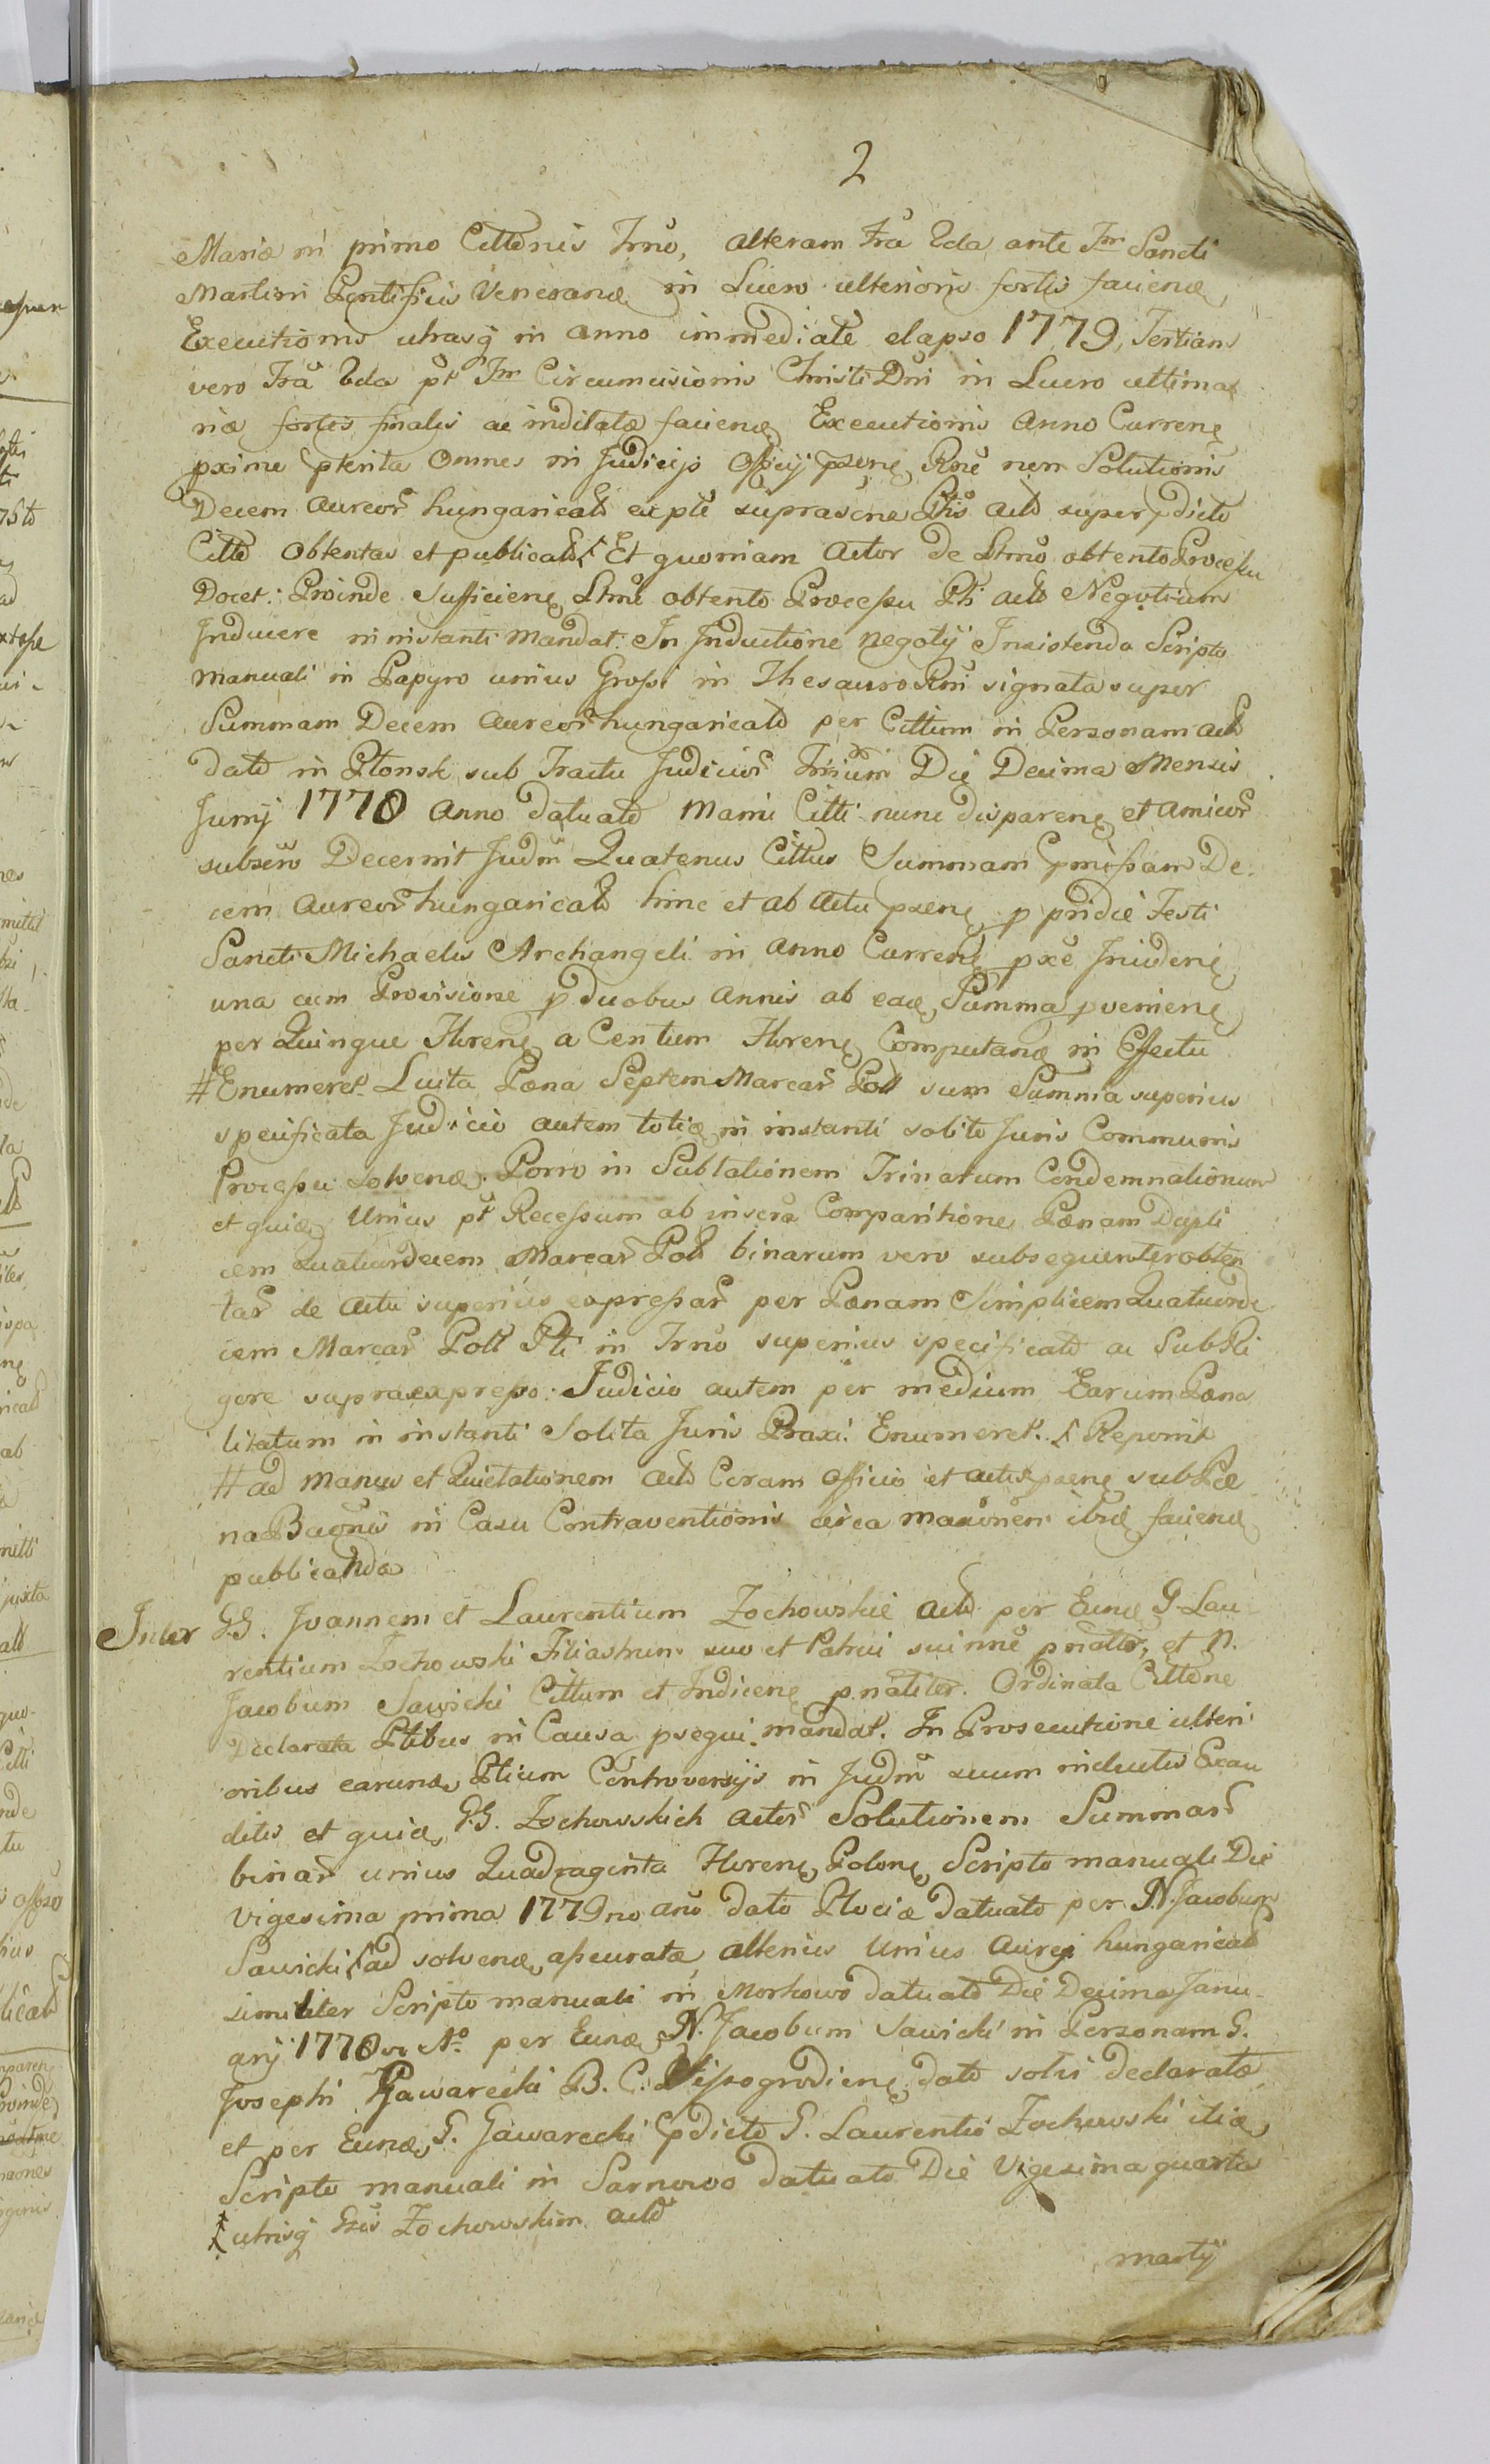 2
Mariæ in primo Cittõnis Trno, alteram Fra 2da ante Fm Sancti
Martini Pontificis Venerand in Lucro ulterioris fortis faciend
Executionis utrasq in anno immediate elapso 1779, Tertiam
vero Fra 2da pt Fm Circumcisionis Christi Dni in Lucro ultima
riæ fortis finalis ac inditatæ faciend Executionis Anno Curren
pxime pterita Omnes in Judicijs Officij psen, Rne non Solutionis
Decem Aureor hungarical ex pte suprascna Ptis act super pdicto
Citto Obtentas et publicatas Et quoniam Actor de Ltmo obtento Processu
Docet: Proinde Sufficien Ltme obtento Processu Pti act Negotium
Inducere in instanti Mandat: In Inductione negotij Insistendo Scripto
manuali in Papyro unius Grossi in Thesauro Rni signata super
Summam Decem Aureor hungarical per Cittum in Personam act
dato in Plonsk sub Tractu Judicior Die Decima Mensis
Junij 1778 Anno datuato Manu Citti nunc disparen et amicor
subscro Decernit Judm Quatenus Cittus Summam pmissam De-
cem Aureor hungarical hinc et ab Actu psen p pridie Festi
Sancti Michaelis Archangeli in Anno Curren pxe Inciden
una cum Provisione p duobus Annis ab ead Summa pvenien
per Quinque Floren a Centum Floren Computand in Effectu
# Enumeret. Luita Pæna Septem Marcar Poll cum Summa superius
specificata Judicio autem totid in instanti solito Juris Communis
Processu solvend. Porro in Sublationem Trinarum Condemnationum
et quid Unius pt Recessum ab inscra Comparitione Pænam Dupli
cem Quatuordecem Marcar Poll binarum vero subsequenter obten
tar de Actu superius expressar per Pænam Simplicem Quatuorde
cem Marcar Poll Pti in Trno superius specificato ac Sub Ri
gore supraexpresso. Judicio autem per medium Earum Pæna
litatum in instanti Solita Juris Praxi Enumeret. Reponit
# ad manus et Quietationem act Coram Officio et actis psen sub Pæ
na Bannis in Casu Contraventionis circa maxônem ibid faciend
publicanda
Inter G.G. Joannem et Laurentium Zochowskie act per Eund G. Lau-
rentium Zochowski Filiastrum suo et Patrui sui nne pnaliter, et N.
Jacobum Sawicki Cittum et Indicen pnaliter. Ordinata Cittone
Declarata Ptibus in Causa psequi mandat. In Prosecutione ulteri
oribus earund Ptium Controversijs in Judm suum inductis Exau
ditis et quia G.G. Zochowskich Actor Solutionem Summar
binar unius Quadraginta Floren Polon Scripto manuali Die
Vigesima prima 1779no ano dato Plociæ datuato per N. Jacobum
Sawicki ad solvend assecuratæ alterius Unius Aurei hungarical
similiter Scripto manuali in Morkowo datuato Die Decima Janu-
arij 1778vo Ao per Eund N. Jacobum Sawicki in Personam G.
Josephi Gawarecki B. C. Wissogrodien dato solvi declaratæ
et per Eund G. Gawarecki pdicto G. Laurentio Zochowski itid
Scripto manuali in Sarnowo datuato Die Vigesima quarta
utrisq Gsis Zochowskim act
martij